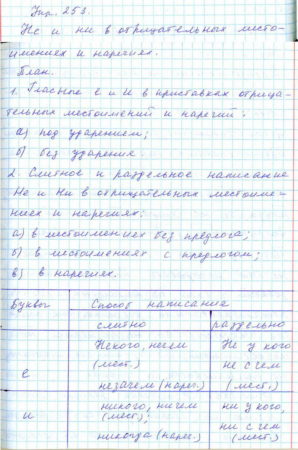 Упр. 253.
Не и ни в отрицательных место-
имениях и наречиях.
План.
1. Гласные е и и в приставках отрица-
тельных местоимений и наречий:
а) под ударением;
б) без ударения.
2. Слитное и раздельное написание
Не и Ни в отрицательных местоиме-
ниях и наречиях:
а) в местоимениях без предлога;
б) в местоимениях с предлогом;
в) в наречиях.
Буквы Способ написания
слитно раздельно
Некого, нечем Не у кого
(мест.) не с чем
е незачем (нареч.) (мест.)
никого, ничем ни у кого,
и (мест.); ни с чем
никогда (нареч.) (мест.)